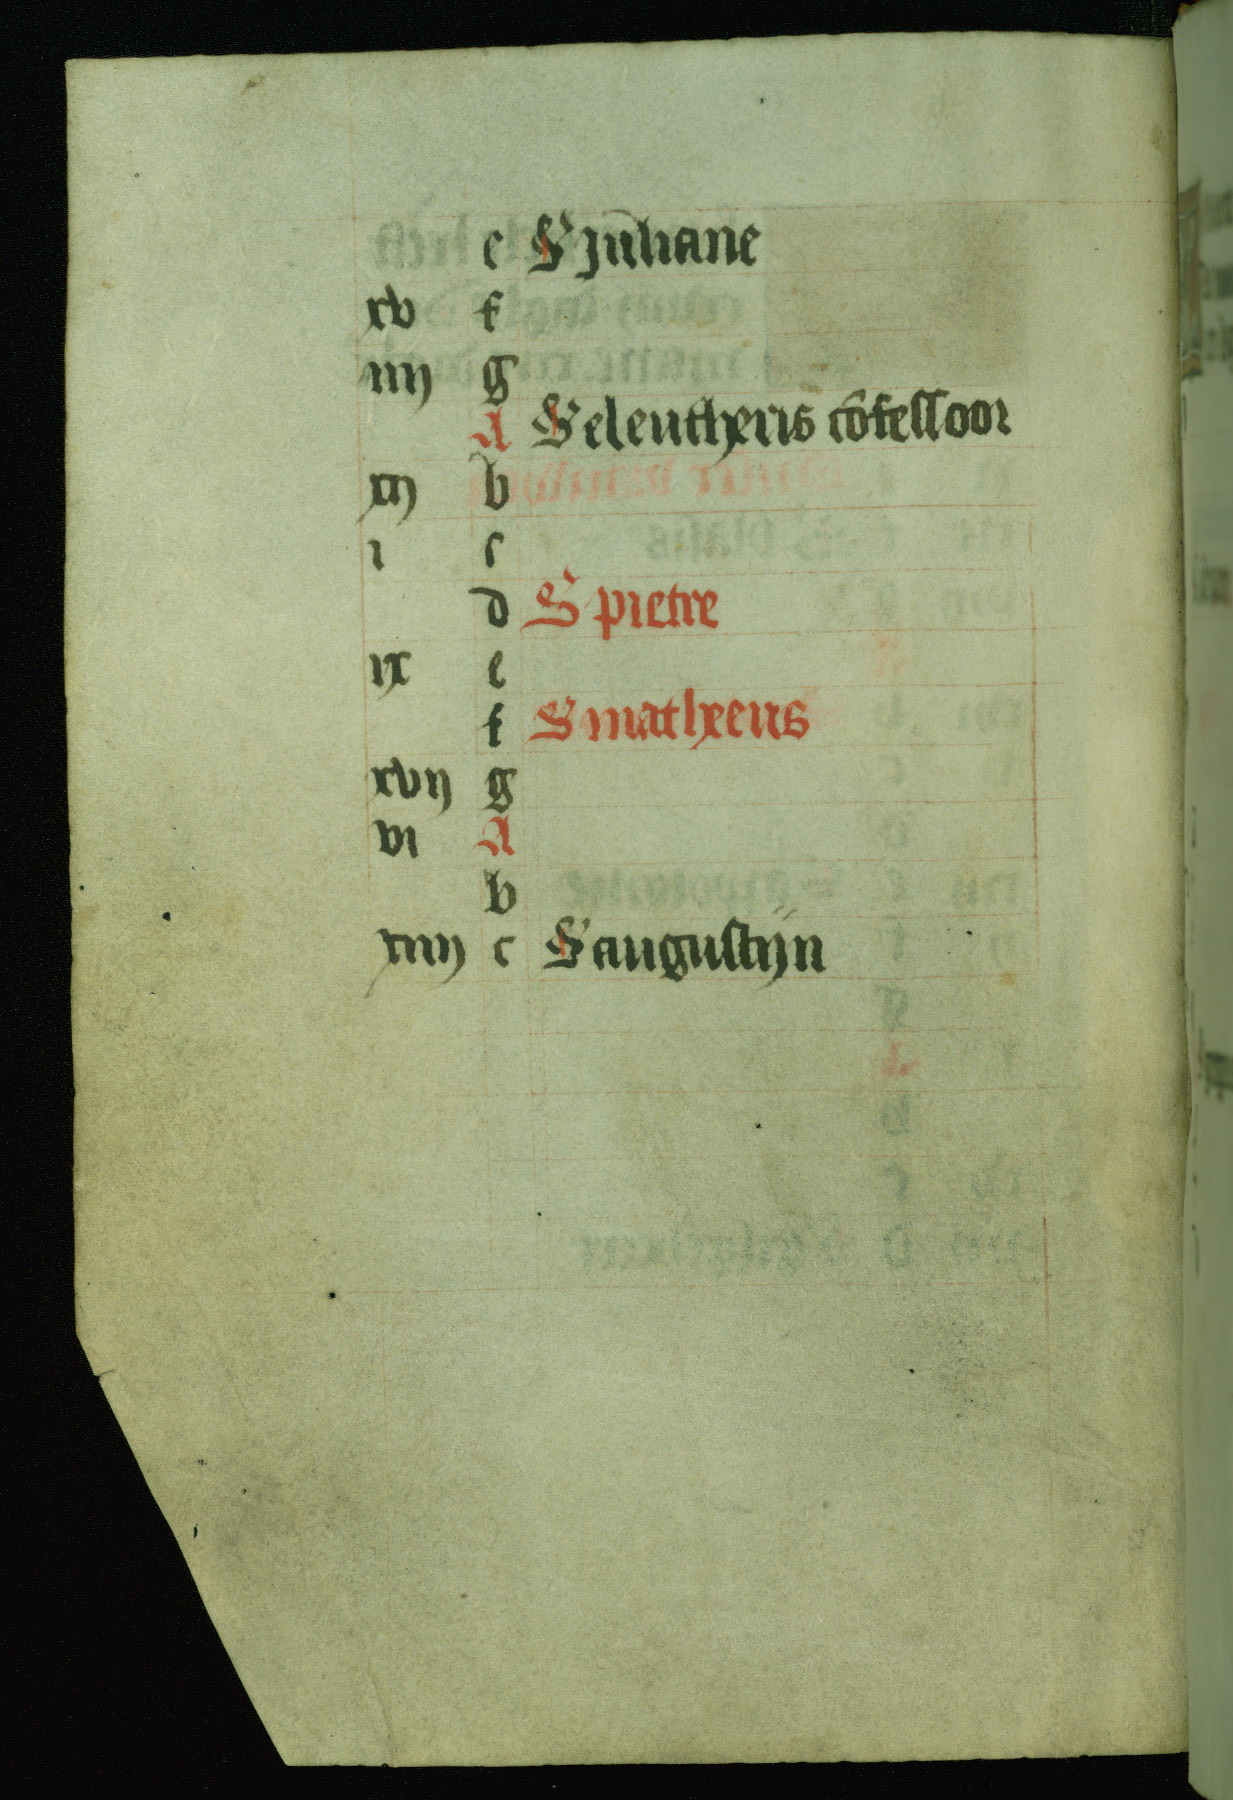 e S juliane
xv f
iiij g
A S eleutherius cōfessoor
xij b
i c
d S pietre
ix e
f S matheus
xvij g
vi A
b
xiiij c S augustijn